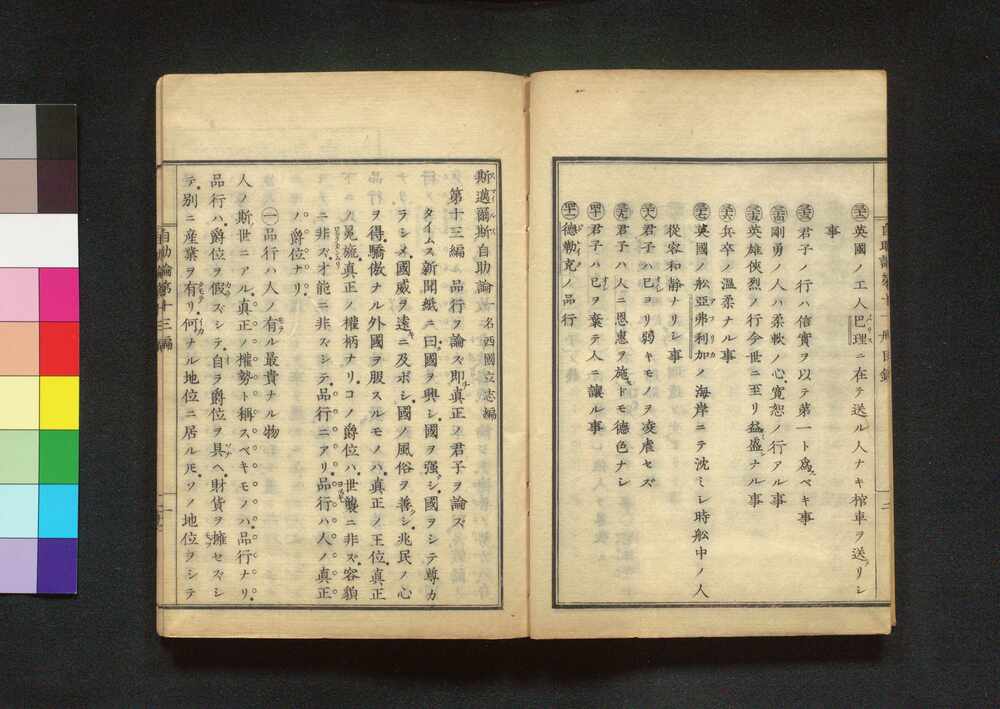 英國ノ工人巴理ニ在テ送ル人ナキ棺車ヲ送リシ
事
君子ノ行ハ信實ヲ以テ第一ト爲ベキ事
剛勇ノ人ハ柔軟ノ心寛恕ノ行アル事
英雄俠烈ノ行今世ニ至リ益盛ナル事
兵卒ノ溫柔ナル事
英國ノ舩亞弗利加ノ海岸ニテ沈ミシ時舩中ノ人
從容和静ナリシ事
君子ハ己ヨリ弱キモノヲ凌虐セズ
君子ハ人ニ恩惠ヲ施トモ德色ナシ
君子ハ己ヲ棄テ人ニ讓ル事
德勒克ノ品行
斯邁爾斯自助論 一名西國立志編
第十三編 品行ヲ論ズ即真正ノ君子ヲ論ズ
タイムス新聞紙ニ曰國ヲ興シ國ヲ强シ國ヲシテ尊カ
ラシメ國威ヲ遠ニ及ボシ國ノ風俗ヲ善シ兆民ノ心
ヲ得驕傲ナル外國ヲ服スルモノハ真正ノ王位真正
ノ冕旒真正ノ權柄ナリコノ爵位ハ世襲ニ非ズ容貌
ニ非ズ才能ニ非ズシテ品行ニアリ品行ハ人ノ真正
ノ爵位ナリ
㊀品行ハ人ノ有ル最貴ナル物
人ノ斯世ニアル真正ノ權勢ト稱スベキモノハ品行ナリ
品行ハ爵位ヲ假ズシテ自ラ爵位ヲ具ヘ財貨ヲ擁セズシ
テ別ニ産業ヲ有リ何ナル地位ニ居ルモソノ地位ヲシテ
自助論第十三編
一